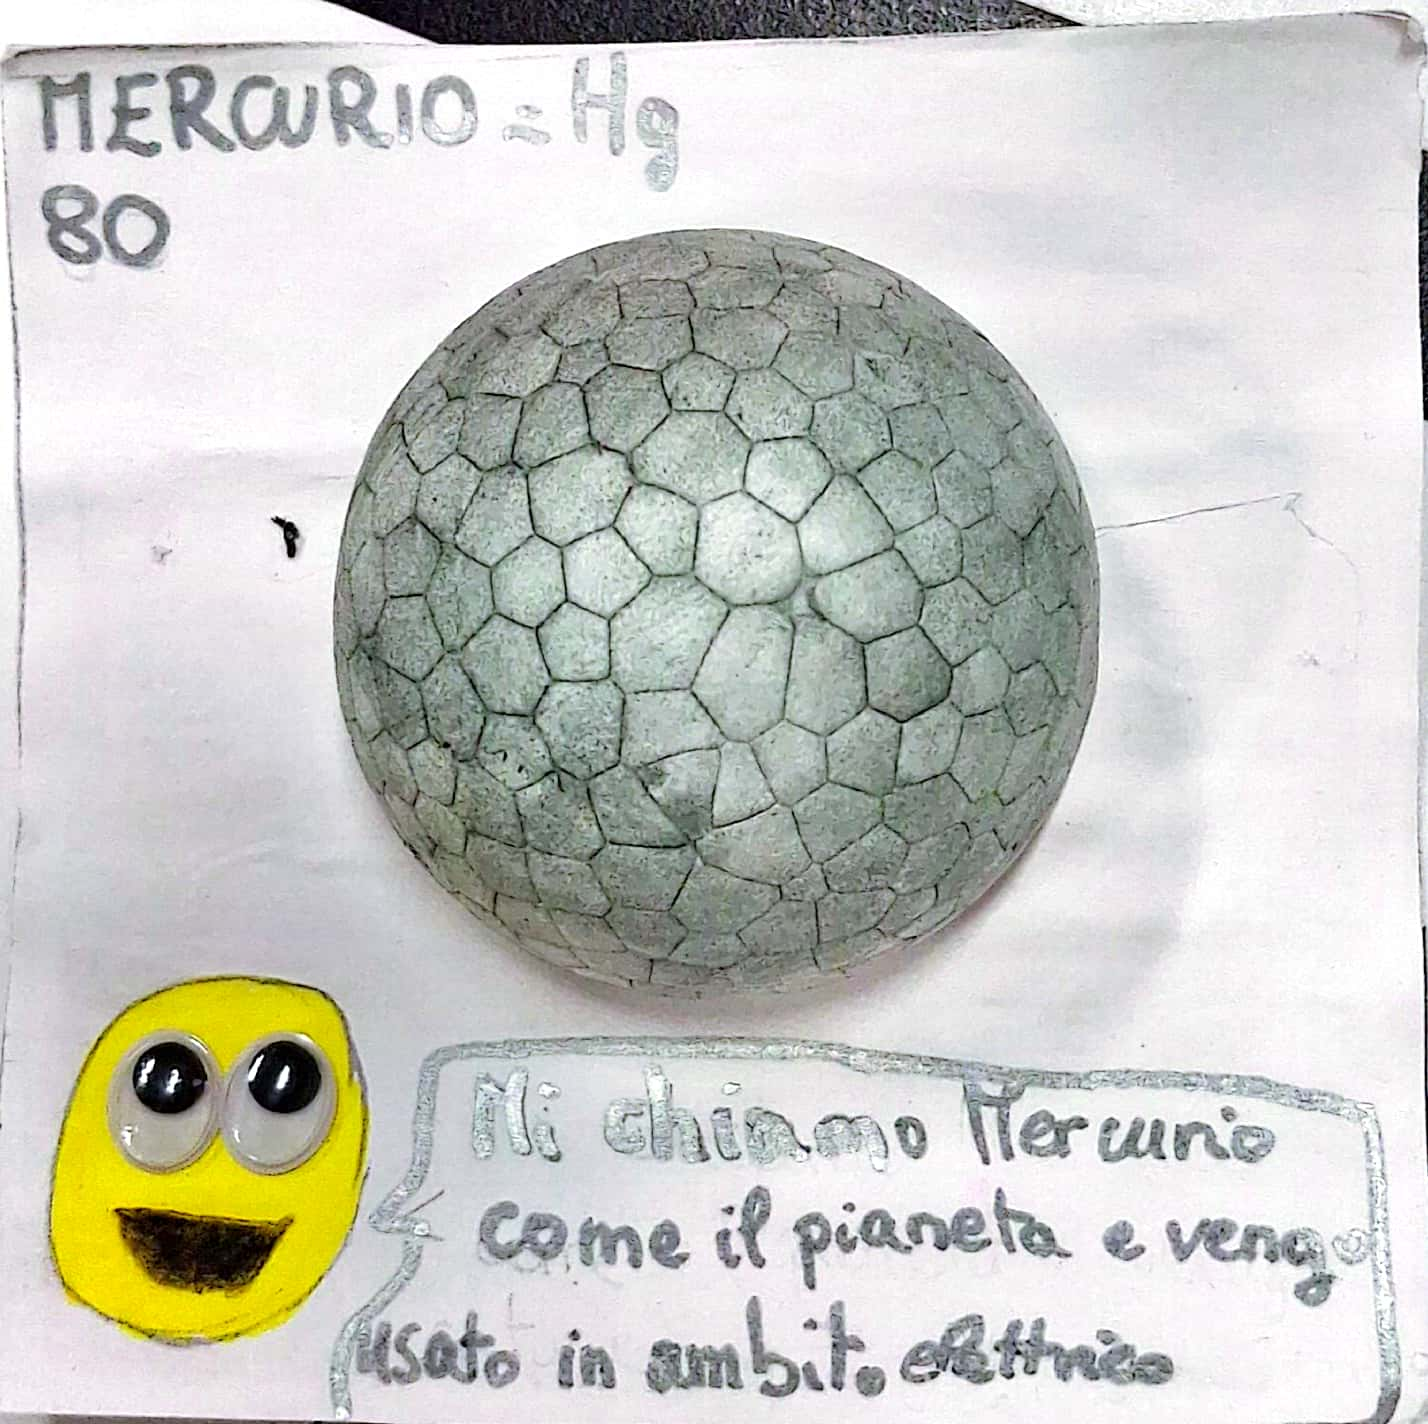 MERCURIO = Hg
80
Mi chiamo Mercurio
come il pianeta e vengo
usato in ambito elettrico